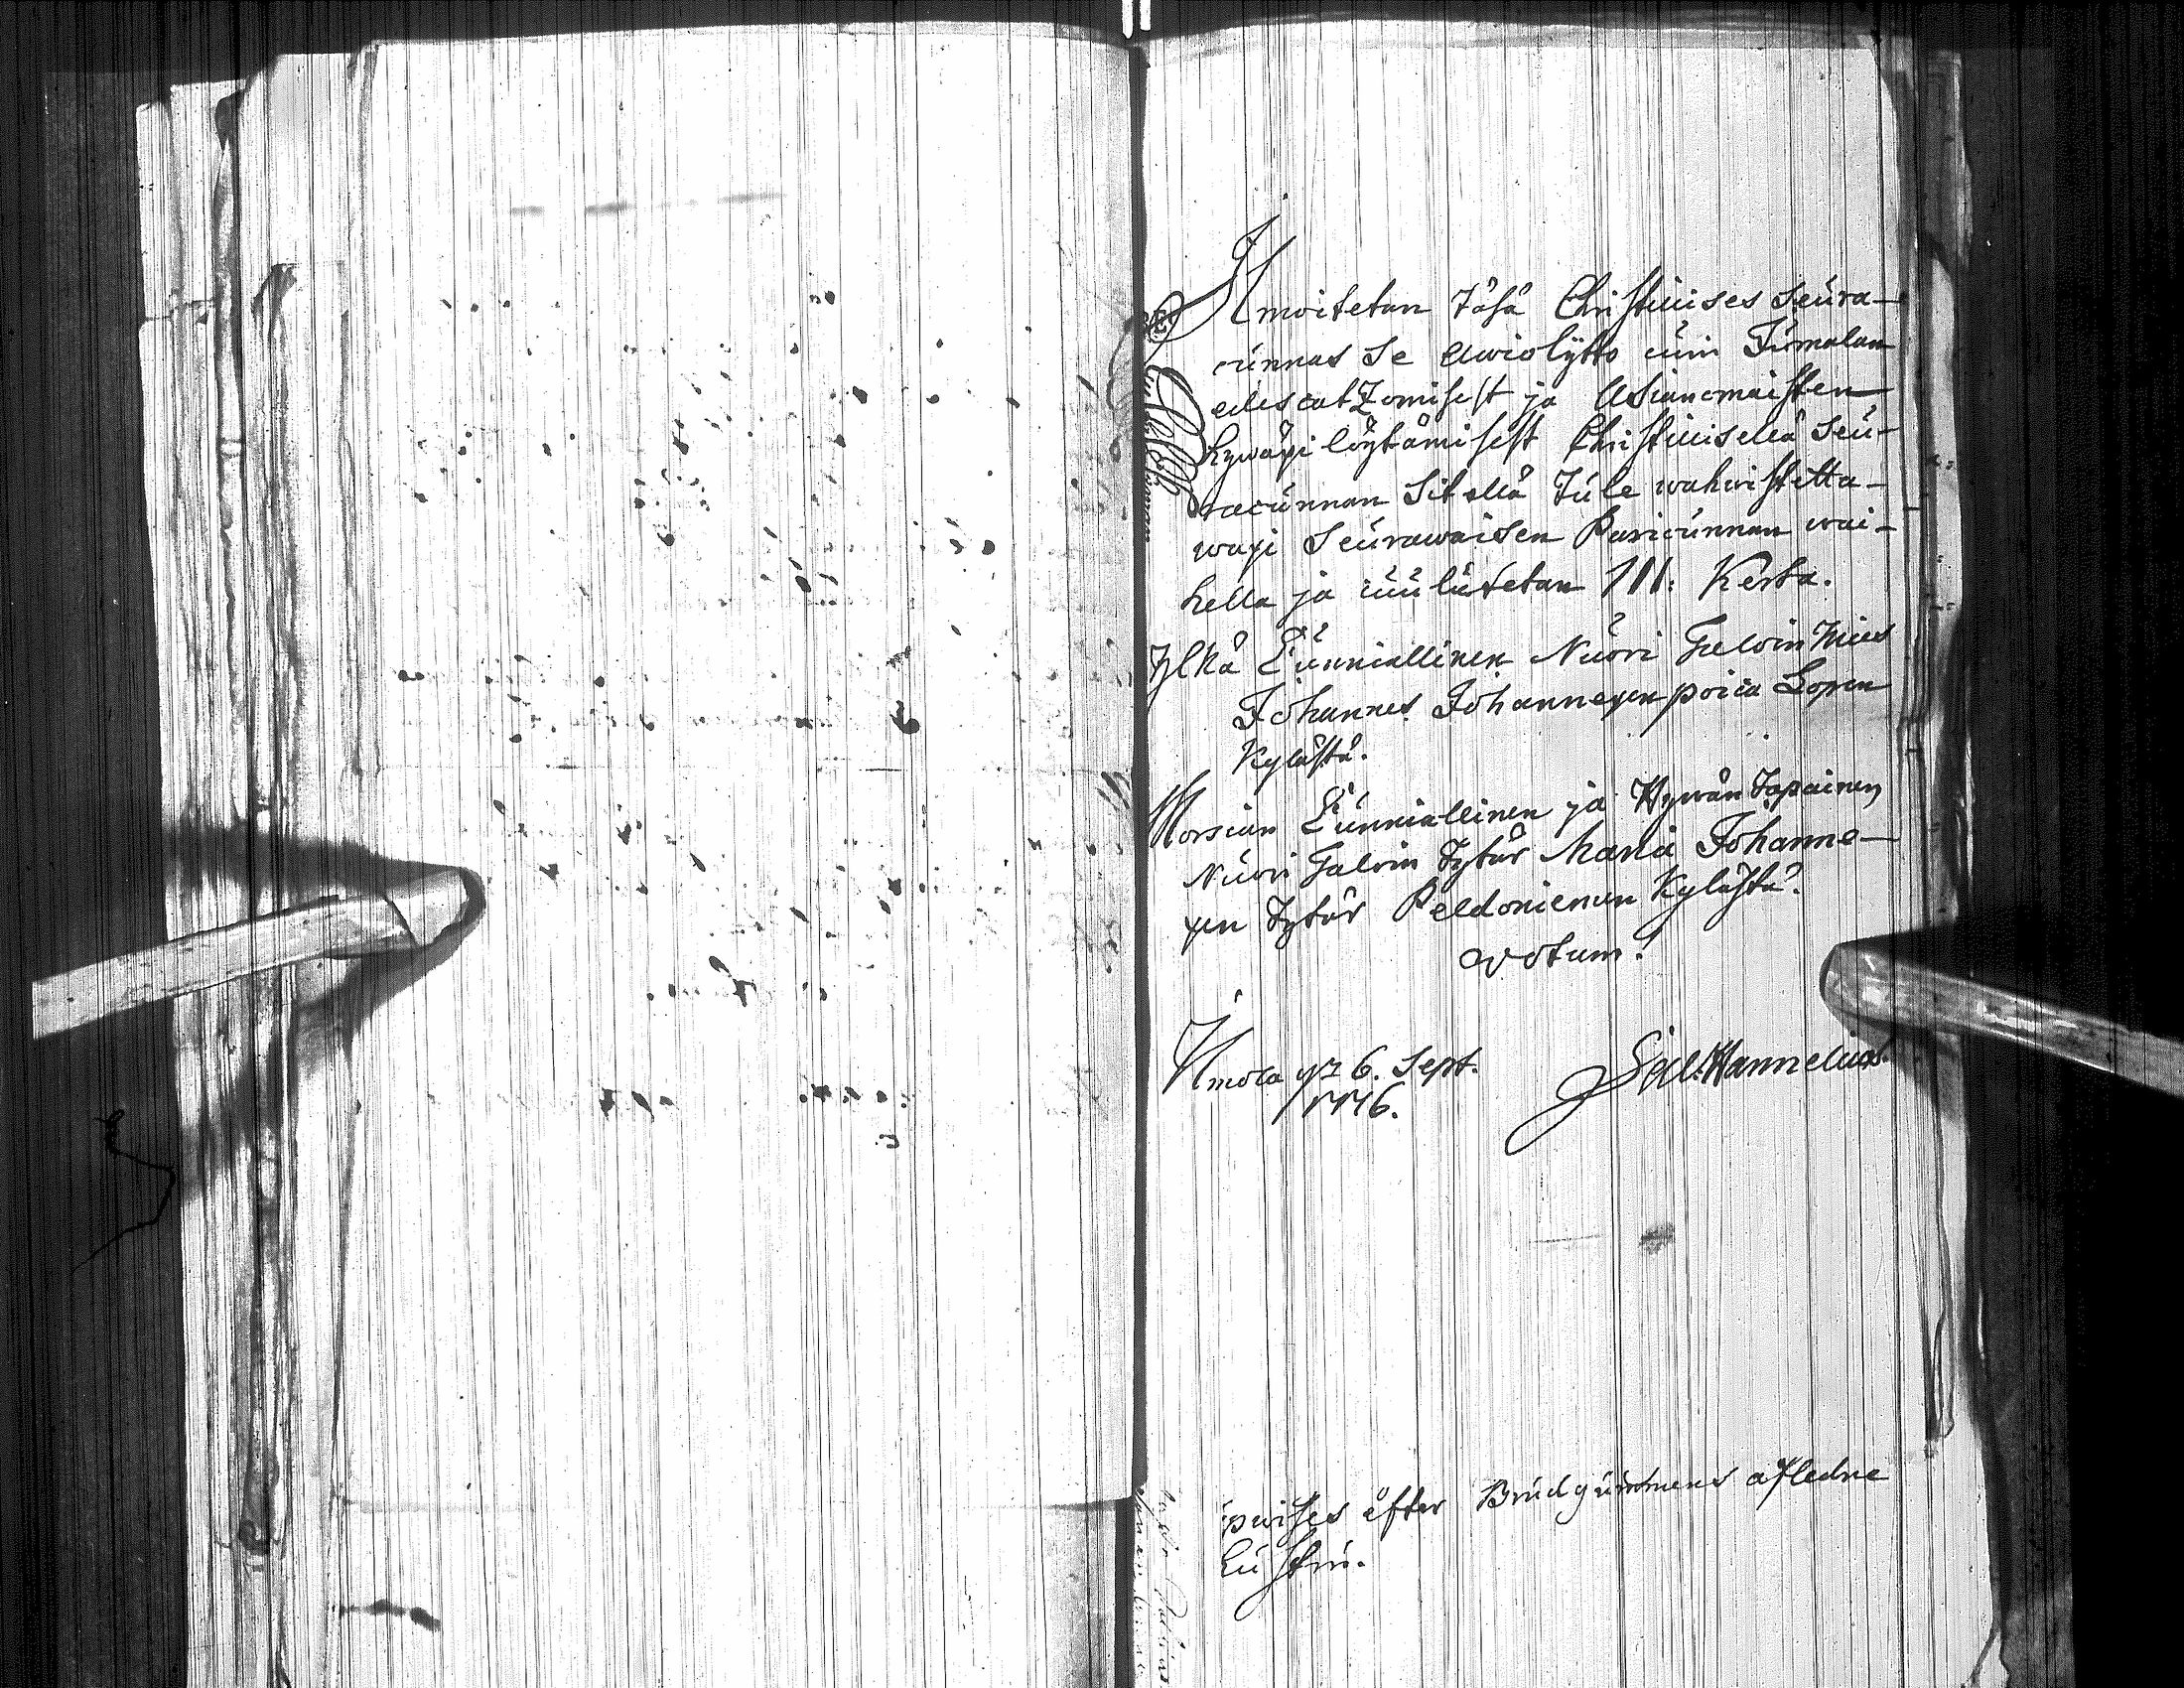 Ilmoitetan täsä Christillises Seura-
cunnas se Awiolijtto cuin Jumalan
edescatzomisest ja Asianomaisten
hywäxi löytämisest Christillisellä Seu-
racunnan Siteellä Tule wahwistetta-
waxi Seurawaisen Pariscunnan wäi-
hella ja cuulutetan III: Kerta.
Yljkä Cunniallinen Nuori Taloin Mies
Johannes Johannexen poica Lopen
Kylästä.
Morsian Cunniallinen ja Hywän Tapainen
Nuori Talvin Tytär Maria Johanne-
xen Tytär Peldoniemen Kylästä.
Votum!
Ilmola 6. Sept.
1776.
Sal. Hannelius.
efter Brudgummens afledne
hustru.